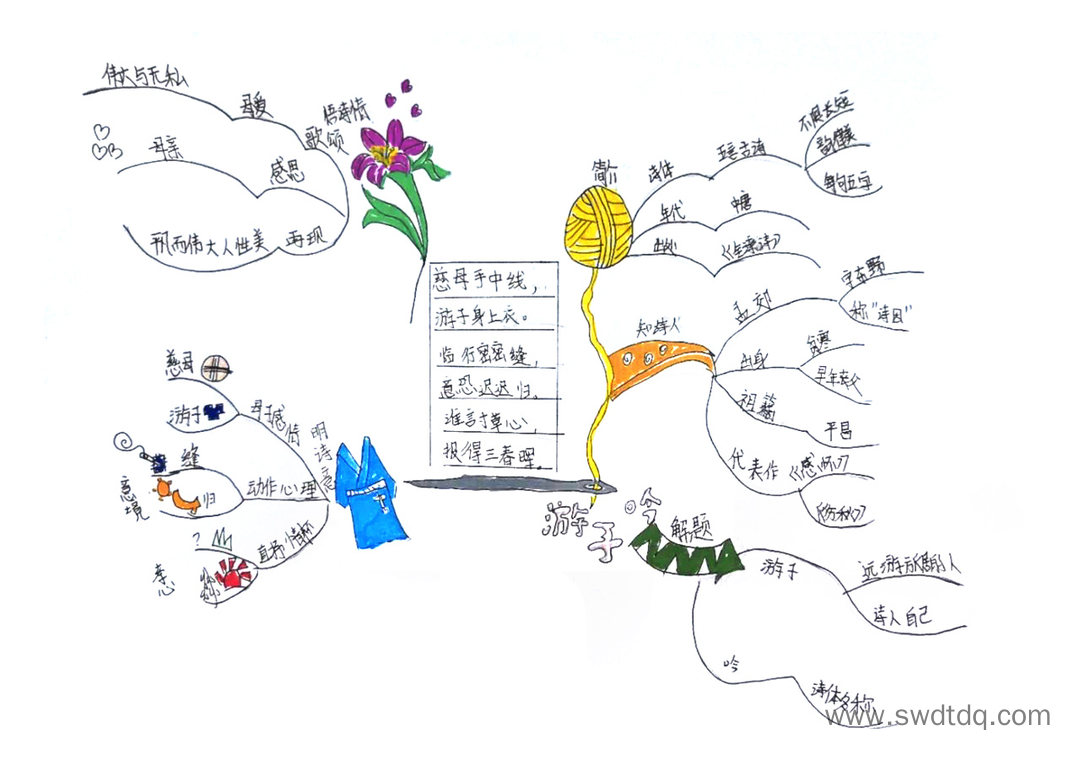 慈母手中线，
游子身上衣。
临行密密缝，
意恐迟迟归。
谁言寸草心，
报得三春晖。
游子吟
简介
诗体
五言古诗
不限长短
每句五字
年代
中唐
出处
知诗人
孟郊
字东野
称"诗囚"
出身
贫寒
祖籍
平昌
代表作
《感怀》
《伤秋》
解题
游子
远游旅居的人
诗人自己
吟
诗体名称
明诗意
母子感情
慈母
游子
动作心理
缝
归
意境
直抒情怀
?
孝心
悟诗情
歌颂
母爱
伟大与无私
感恩
母亲
再现
平凡而伟大人性美
www.swdtdq.com